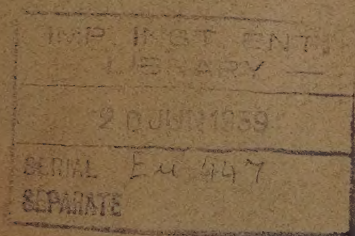 IMP. INST. ENT.
LIBRARY
20 JUN 1939
SERIAL Eu 447
SEPARATE